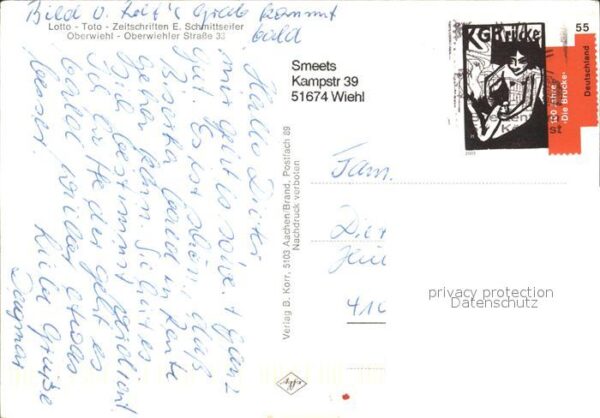 Bild v. Rolf's Grab kommt
bald
Lotto - Toto - Zeitschriften E. Schmittseifer
Oberwiehl - Oberwiehler Straße 33
Hallo Dieter
mir gut es soweit ganz
gut. Es ist schön, daß
Biserka bald in Rente
gehen kann. Sie hat es
sich bestimmt verdient
Ich hoffe dir geht es
bald wieder etwas
besser.
Liebe Grüße
Dagmar
Verlag B. Korr, 5103 Aachen/Brand, Postfach 89
Nachdruck verboten
Smeets
Kampstr 39
51674 Wiehl
KG Brücke
55
Deutschland
100 Jahre
›Die Brücke‹
Fam.
Diet
410
privacy protection
Datenschutz